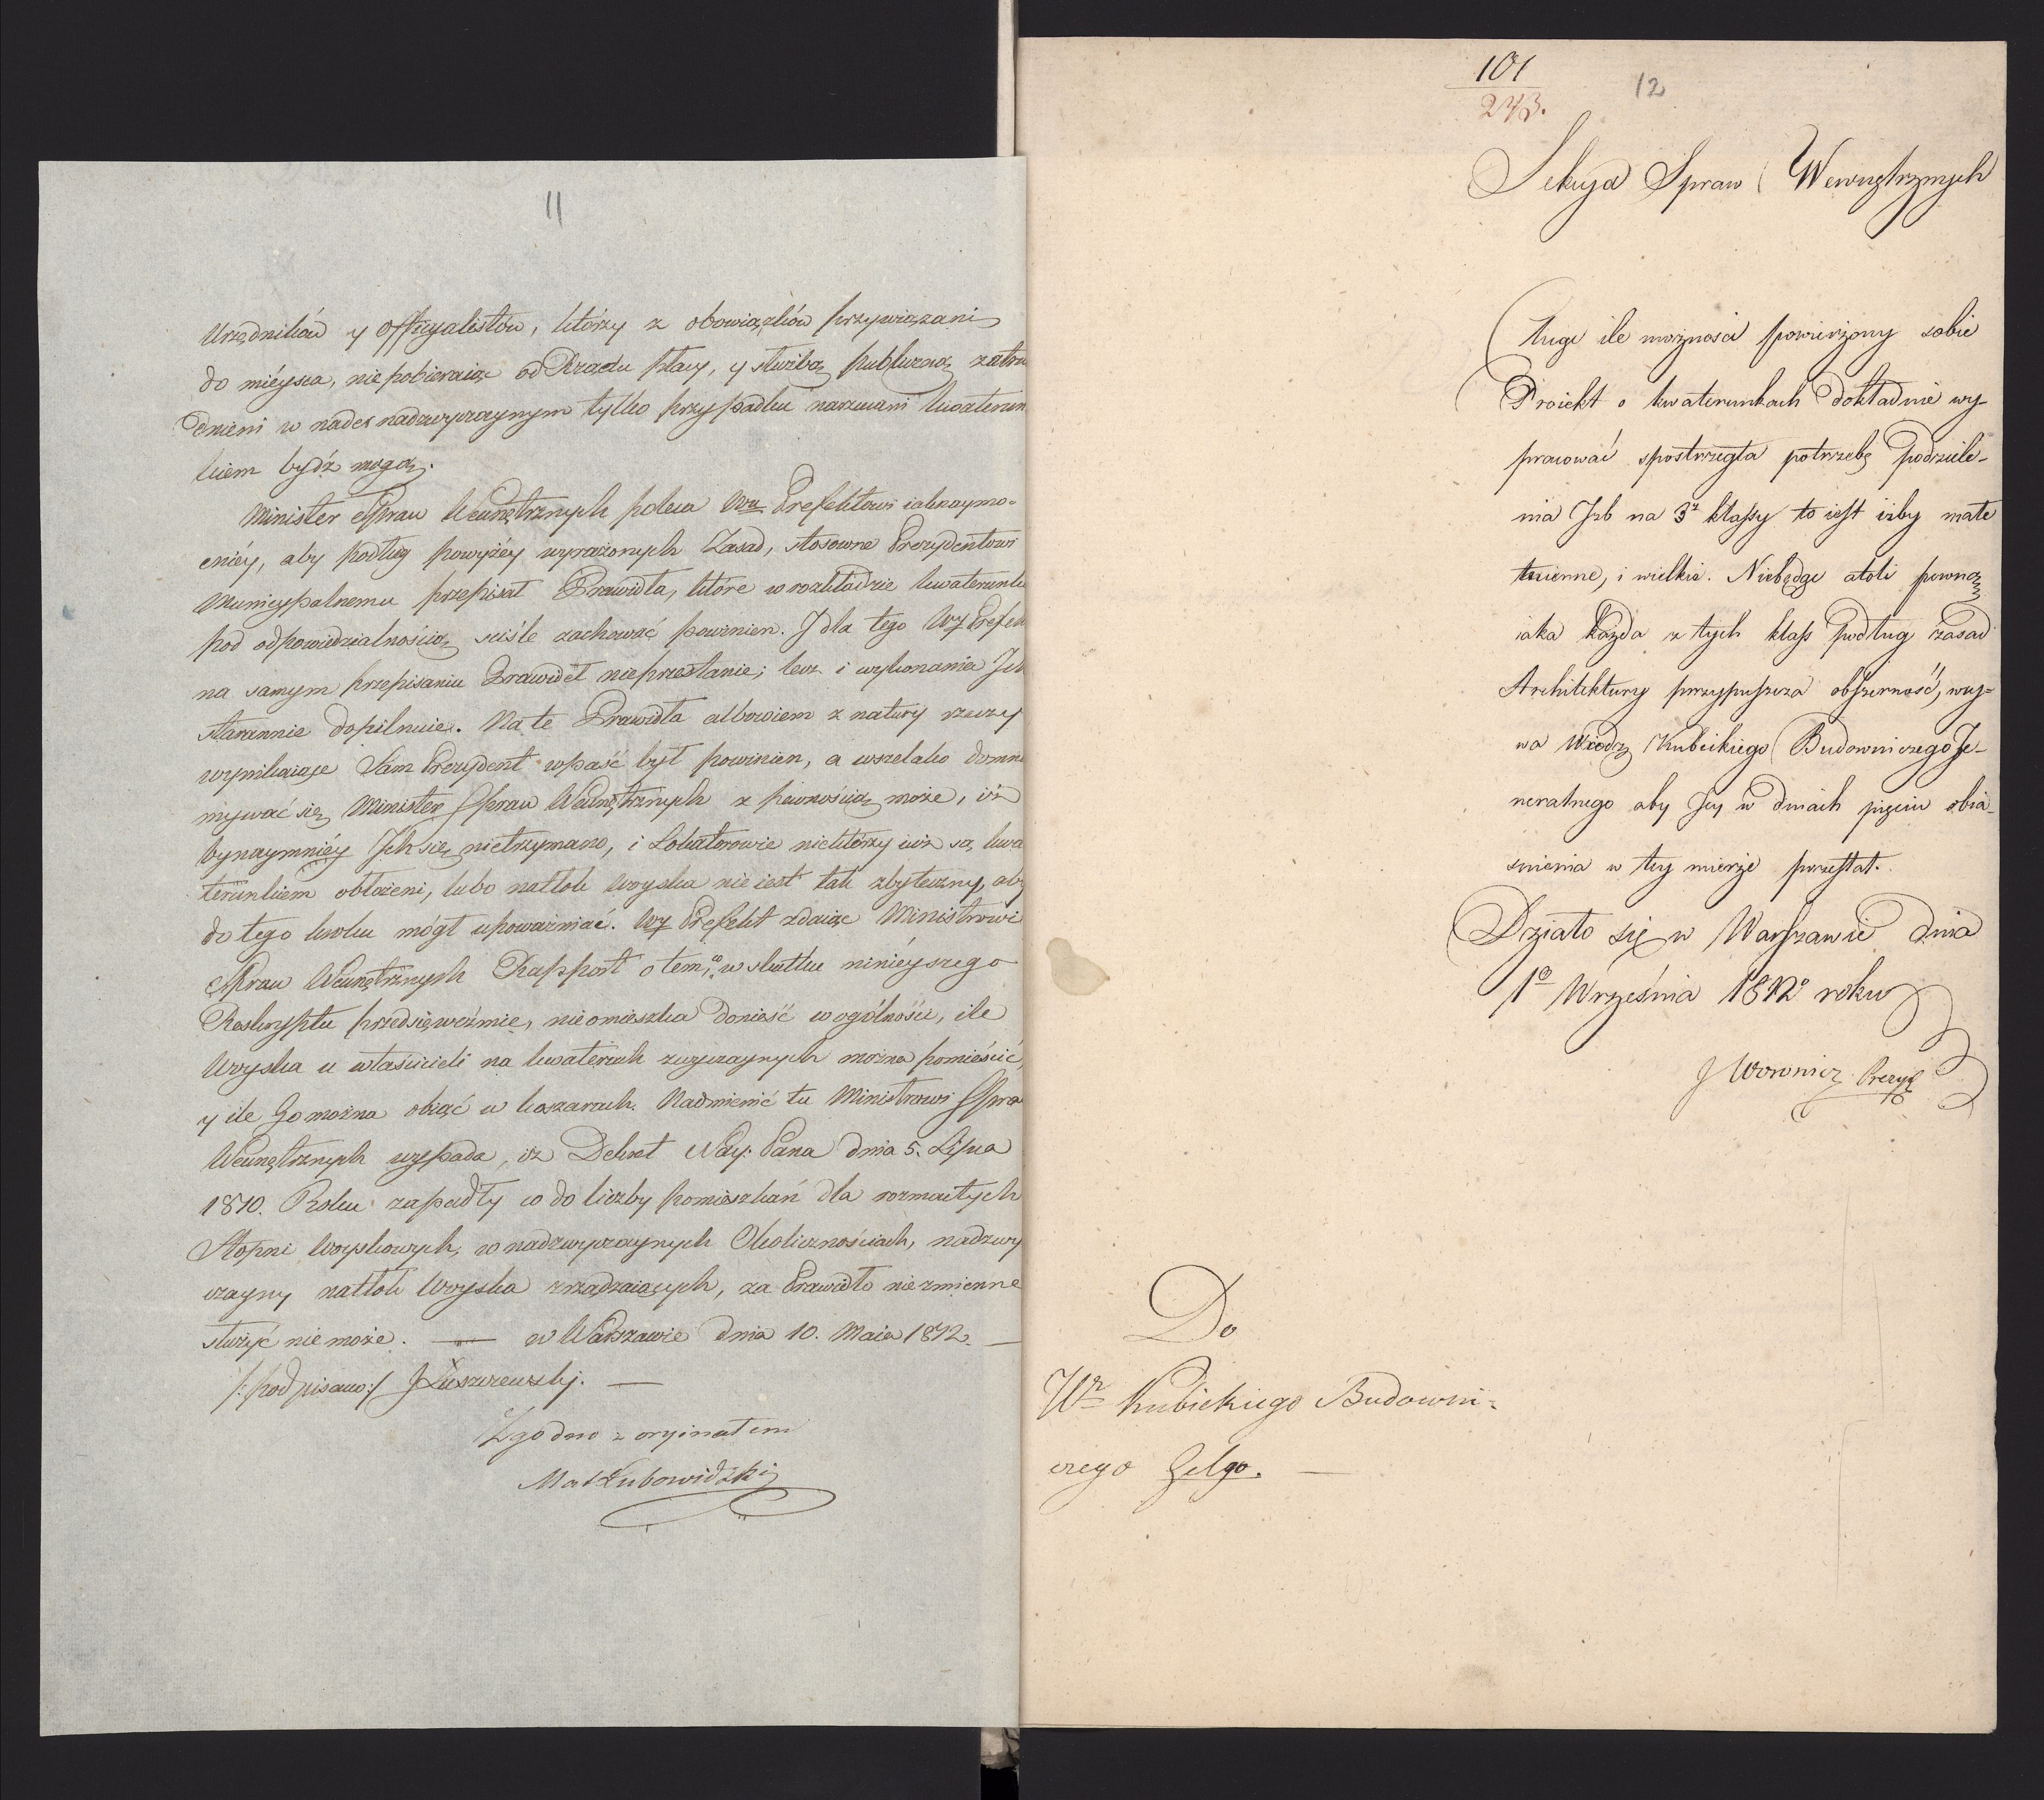 11
Urzędników y Officyalistów, którzy z obowiązków przywiązani
do mieysca, nie pobieraiąc od Rządu płacy, y służbą publiczną zatru
dnieni w nader nadzwyczaynym tylko przypadku narzucani kwaterun
kiem bydź mogą.
Minister Spraw Wewnętrznych poleca Wu Prefektowi iaknaymo-
cniéy, aby podług powyżéy wyrażonych Zasad, stosowne Prezydentowi
Municypalnemu przepisał Prawidła, które w rozkładzie kwaterunku
pod odpowiedzialnością ściśle zachować powinien. I dla tego Wy Prefekt
na samym przepisaniu Prawideł nieprzestanie; lecz i wykonania Ich
starannie dopilnuie. Na te Prawidła albowiem z natury rzeczy
wynikaiące Sam Prezydent wpaść był powinien, a wszelako domnie
mywać się Minister Spraw Wewnętrznych z pewnością może, iż
bynaymniéy Ich się nietrzymano, i Lokatorowie niektórzy iuż są kwa
terunkiem obłożeni, lubo natłok woyska nie iest tak zbyteczny, aby
do tego kroku mógł upoważniać. Wy Prefekt zdaiąc Ministrowi
Spraw Wewnętrznych Rapport o tem, co w skutku ninieyszego
Reskryptu przedsięweźmie, nieomieszka donieść w ogólności, ile
Woyska u właścicieli na kwaterach zwyczaynych można pomieścić,
y ile Go można obiąć w koszarach. Nadmienić tu Ministrowi Spra
Wewnętrznych wypada, iż Dekret Nay: Pana dnia 5. Lipca
1810. Roku zapadły co do liczby pomieszkań dla rozmaitych
Stopni Woyskowych, w nadzwyczaynych Okolicznościach, nadzwy
czayny natłok Woyska zrządzaiących, za Prawidło niezmienne
służyć nie może. — w Warszawie dnia 10. Maia 1812. —
/:podpisano:/ J Łuszczewski. —
Zgodno z oryinałem
Mat Lubowidzki
101
243.
12
Sekcya Spraw Wewnętrznych
Chcąc ile możności powierzony sobie
Proiekt o kwaterunkach dokładnie wy-
pracować spostrzegła potrzebę podziele-
nia Izb na 3y klassy to iest izby małe
mierne, i wielkie. Niebędąc atoli pewną
iaka każda z tych klass podług zasad
Architektury przypuszcza obszerność, wzy-
wa Kubickiego Budowniczego Je-
neralnego aby Jey w dniach pięciu obia-
snienia w tey mierze przesłał.
Działo się w Warszawie dnia
1o Września 1812o roku
J Woronicz Prezyd
Do
Wo Kubickiego Budowni-
czego Gelgo. —